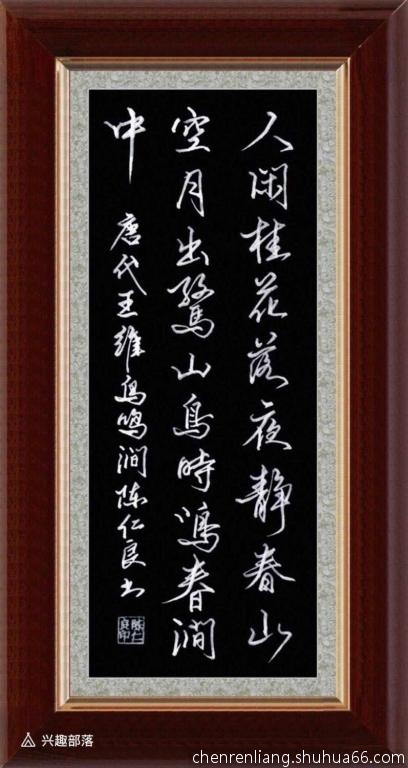 人閑桂花落夜静春山
空月出驚山鳥時鳴春澗
中
唐代王維鳥鳴澗陈仁良书
陈仁良印
兴趣部落
chenrenliang.shuhua66.com